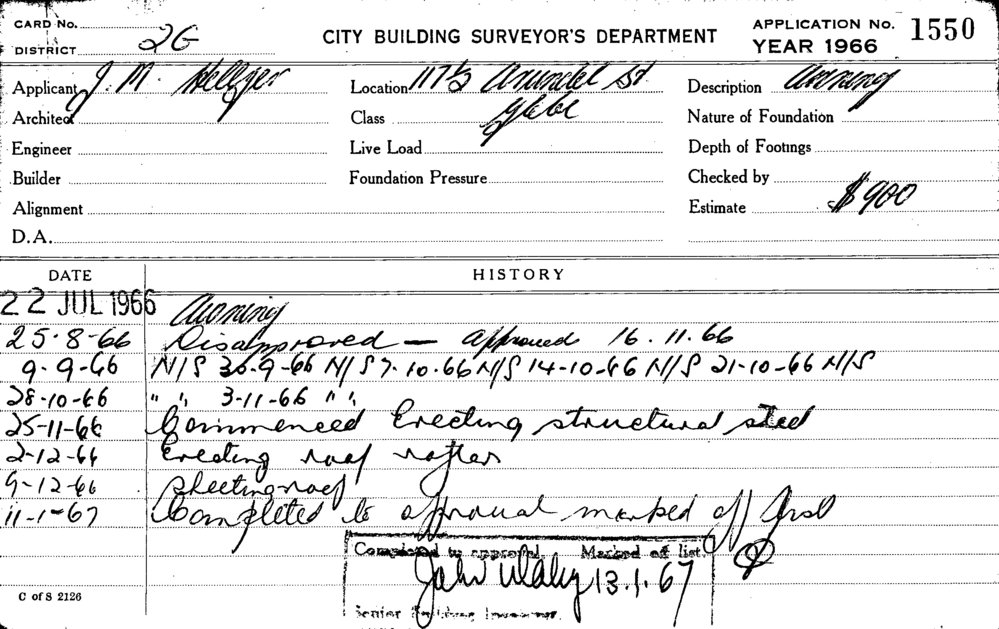 CARD No.
DISTRICT 2G
CITY BUILDING SURVEYOR'S DEPARTMENT
APPLICATION No. 1550
YEAR 1966
Applicant J. M. Hellyer
Location 117½ Arundel St
Description Awning
Architect
Class Glebe
Nature of Foundation
Engineer
Live Load
Depth of Footings
Builder
Foundation Pressure
Checked by
Alignment
Estimate $900
D.A.
DATE HISTORY
22 JUL 1966 Awning
25-8-66 Disapproved — approved 16.11.66
9-9-66 N/S 30-9-66 N/S 7-10-66 N/S 14-10-66 N/S 21-10-66 N/S
28-10-66 " " 3-11-66 " "
25-11-66 Commenced Erecting structural steel
2-12-66 Erecting roof rafters
9-12-66 Sheeting roof
11-1-67 Completed to approval marked off
Completed to approval. Marked off list.
John 13.1.67
Senior Building Inspector.
C of S 2126